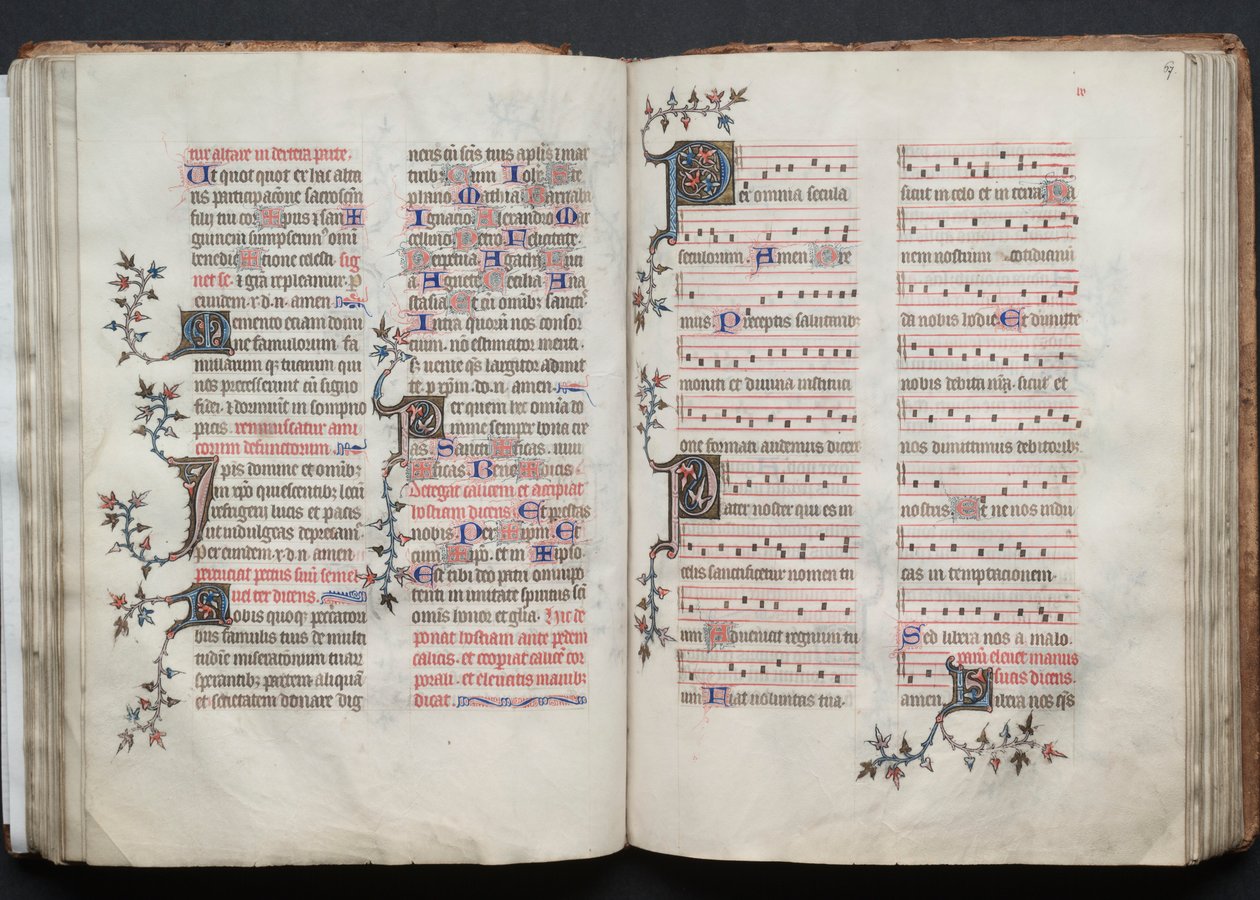 tur altare in dextera parte.
Ut quot quot ex hac alta
ris participacōne sacrosc̄m
filii tui cor✠pus ⁊ san✠
guinem sumpserimꝰ omī
benedic✠tione celesti sig
net se. ⁊ gr̄a repleamur. p
eundem. x. d. n. amen.
Memento etiam domi
ne famulorum. fa
mularum qꝫ tuarum qui
nos precesserunt cū signo
fidei. ⁊ dormiūt in sompno
pacis. reminiscatur ami
corum defunctorum.
Ipsis domine et omibꝫ
in xp̄o quiescentibꝫ locū
refrigerii lucis et pacis
ut indulgeas deprecam̄.
Per eundem. x. d. n. amen.
percuciat pectus suū semel
uel ter dicens.
Nobis quoqꝫ peccatori
bus famulis tuis de multi
tudine miseratōnum tuaꝝ
sperantibꝫ partem aliquā
et societatem donare dig
neris cū sc̄is tuis ap̄lis ⁊ mar
tiribꝫ. Cum Ioh̄e Ste
phano Mathia Barnaba
Ignacio Alexandro Mar
cellino Petro Felicitate
Perpetua Agatha Luci
a Agnete Cecilia Ana
stasia Et cū omībꝫ sanctꝭ
Intra quorū nos consor
cium. nō estimator meriti.
sꝫ uenie qs largitor admit
te. p xp̄m. do. n. amen.
Per quem hec omīa do
mine semper bona cre
as. Sancti✠ficas. uiui
✠ficas. Bene✠dicis
Detegat calicem et accipiat
hostiam dicens. Et prestas
nobis. Per ✠ipm̄. Et
cum ✠ip̄o. et in ✠ipso.
Est tibi deo patri omnipo
tenti in unitate spiritus sc̄i
omīs honor et gl̄ia. Hic de
ponat hostiam ante pedem
calicis. et cooperiat calicē cor
porali. et eleuatis manibꝫ
dicat.
67.
Per omnia secula
seculorum. Amen. Ore
mus. Preceptis salutaribꝫ
moniti et diuina instituti
one formati audemus dicere
Pater noster qui es in
celis sanctificetur nomen tu
um. Adueniat regnum tu
um. Fiat uoluntas tua.
sicut in celo et in terra. Pa
nem nostrum cotidianū
da nobis hodie. Et dimitte
nobis debita nr̄a. sicut et
nos dimittimus debitoribꝫ
nostris. Et ne nos indu
cas in temptacionem.
Sed libera nos a malo.
parū eleuet manus
suas dicens.
amen. Libera nos qs